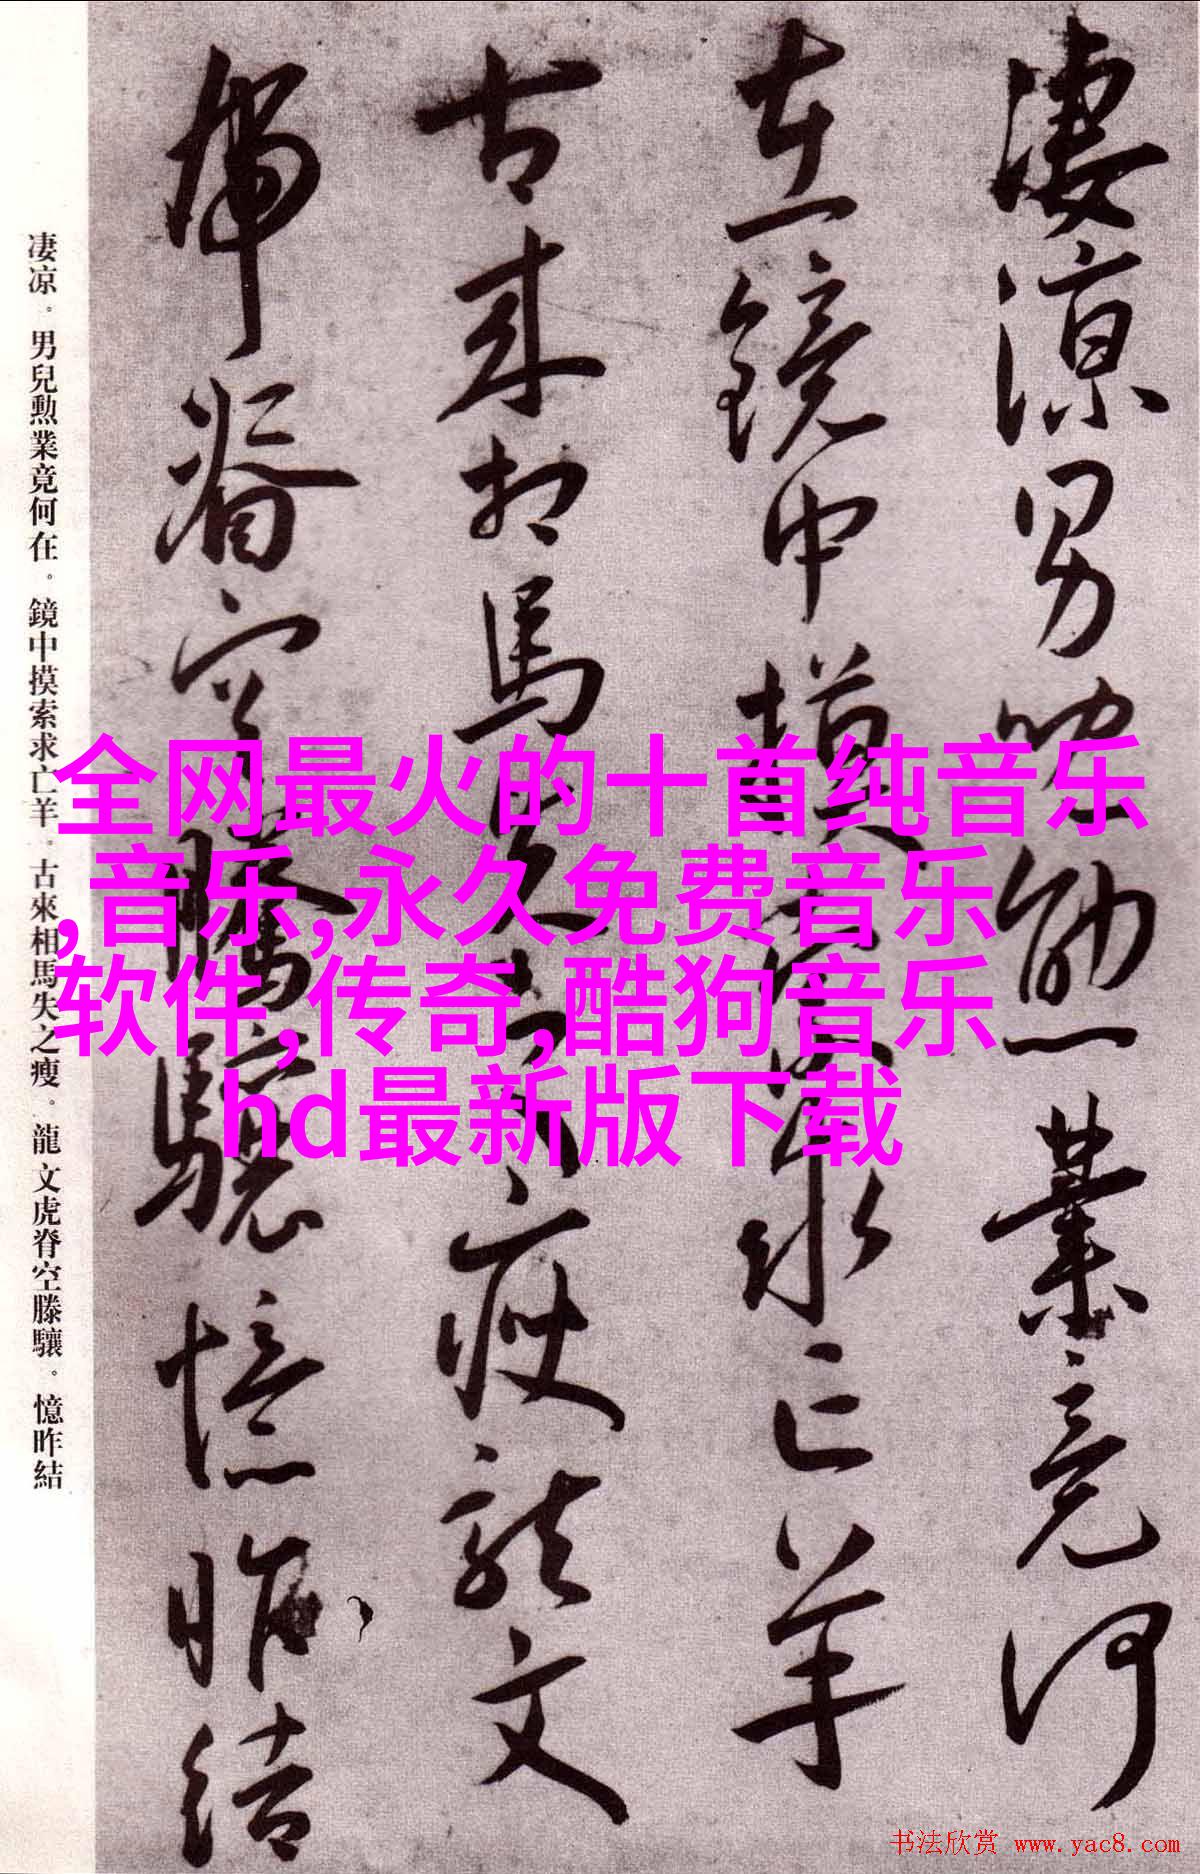 凄凉男兒勳業竟何
在鏡中摸索求亡羊
古来相馬失之瘦龍文
虎脊空騰驤憶昨結
凄凉。男兒勳業竟何在。鏡中摸索求亡羊。古來相馬失之瘦。龍文虎脊空滕驤。憶昨結
全网最火的十首纯音乐
,音乐,永久免费音乐
软件,传奇,酷狗音乐
hd最新版下载
书法欣赏 www.yac8.com